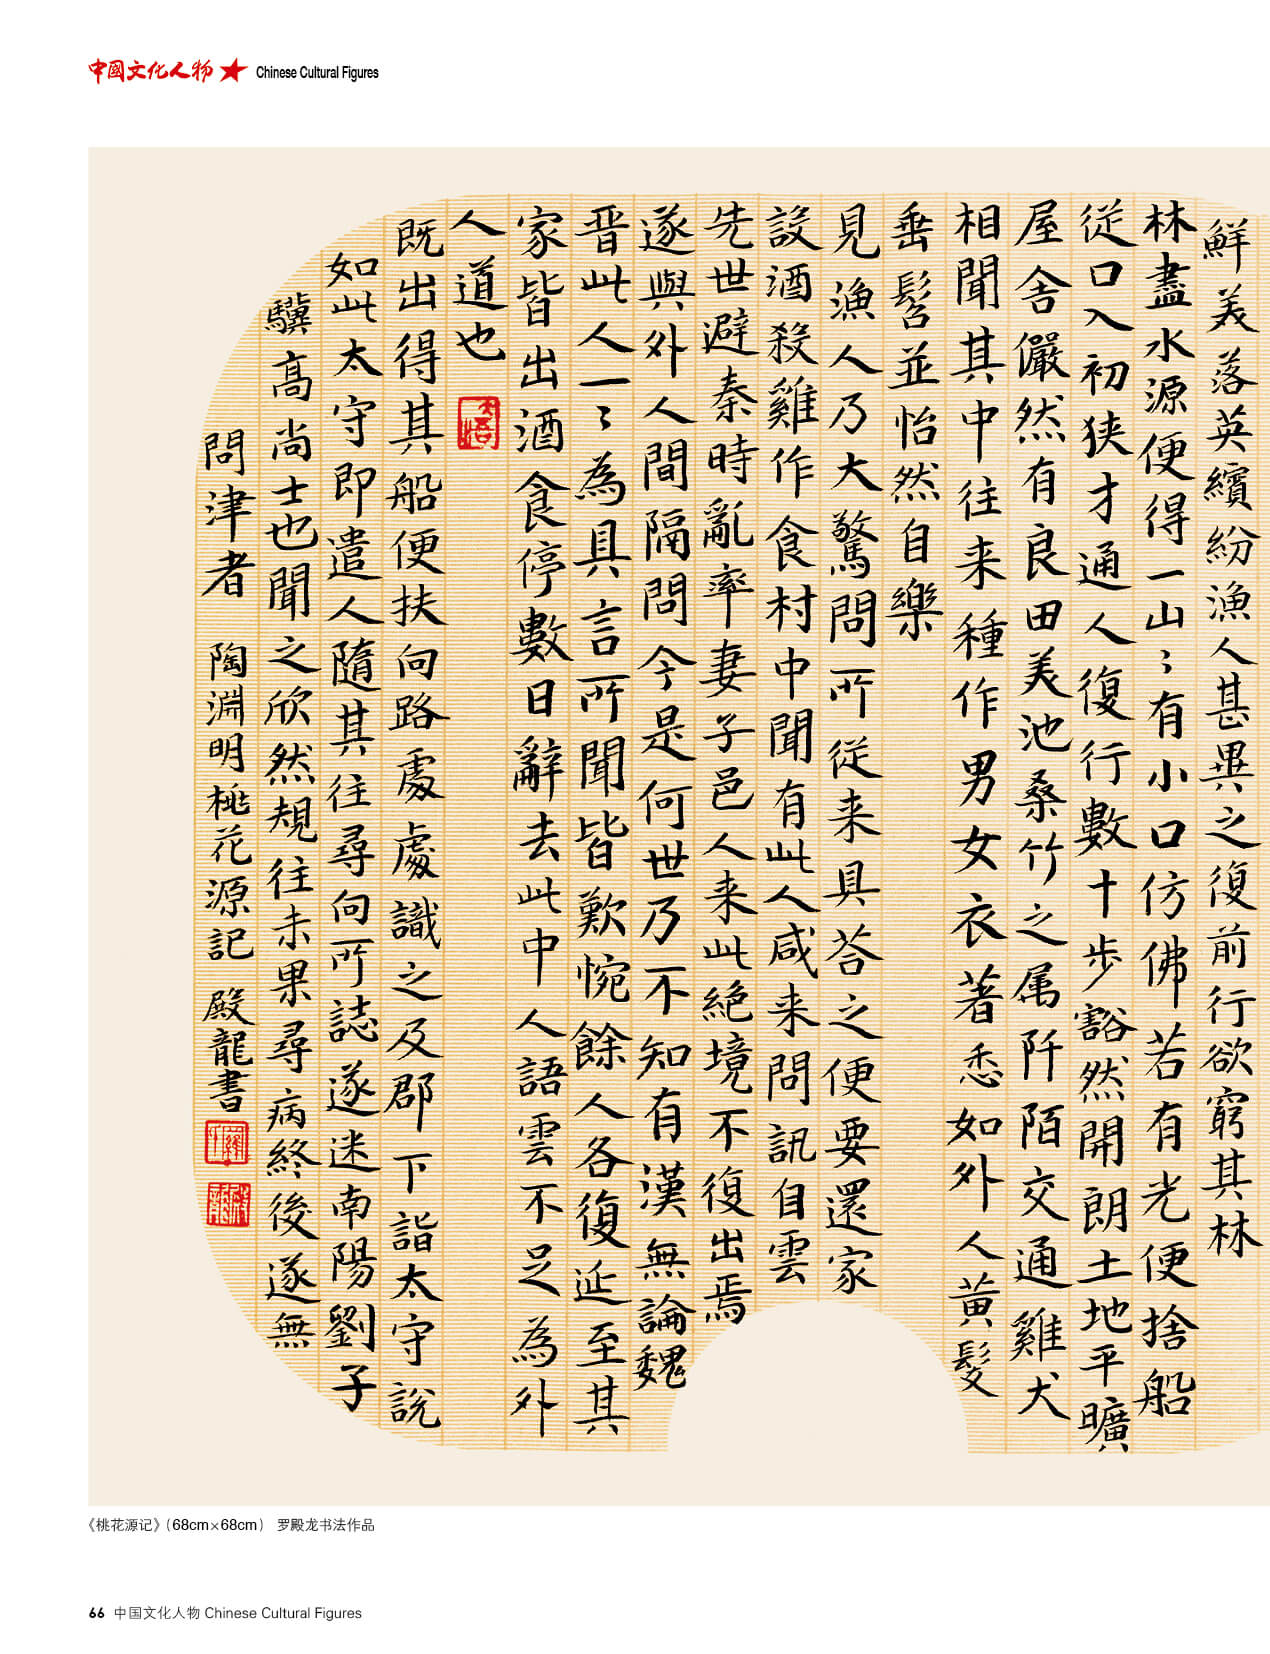 中國文化人物 Chinese Cultural Figures
鮮美落英繽紛漁人甚異之復前行欲窮其林
林盡水源便得一山〻有小口仿佛若有光便捨船
従口入初狭才通人復行數十步豁然開朗土地平曠
屋舍儼然有良田美池桑竹之属阡陌交通雞犬
相聞其中往来種作男女衣著悉如外人黄髮
垂髫並怡然自樂
見漁人乃大驚問所従来具荅之便要還家
設酒殺雞作食村中聞有此人咸来問訊自雲
先世避秦時亂率妻子邑人来此絶境不復出焉
遂與外人間隔問今是何世乃不知有漢無論魏
晋此人一〻為具言所聞皆歎惋餘人各復延至其
家皆出酒食停數日辭去此中人語雲不足為外
人道也
既出得其船便扶向路處處識之及郡下詣太守說
如此太守即遣人隨其往尋向所誌遂迷南陽劉子
驥高尚士也聞之欣然規往未果尋病終後遂無
問津者 陶淵明桃花源記 殿龍書
《桃花源记》（68cm×68cm） 罗殿龙书法作品
66 中国文化人物 Chinese Cultural Figures